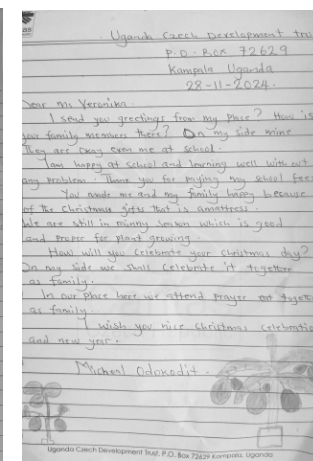 Uganda Czech Development Trus
P.O. BOX 72629
Kampala Uganda
28-11-2024.
Dear Ms Veronika.
I send you greetings from my place? How is
your family members there? On my side mine
They are okay even me at school.
I am happy at school and learning well with out
any problem. Thank you for paying my school fees
You made me and my family happy because
of the Christmas gifts that is amattress.
We are still in rainny season which is good
and proper for plant growing.
How will you Celebrate your christmas day?
On my side we shall Celebrate it together
as family.
In our place here we attend prayer togeth
as family.
I wish you nice christmas celebratio
and new year.
Micheal Odokodit.
Uganda Czech Development Trust, P.O. Box 72629 Kampala, Uganda